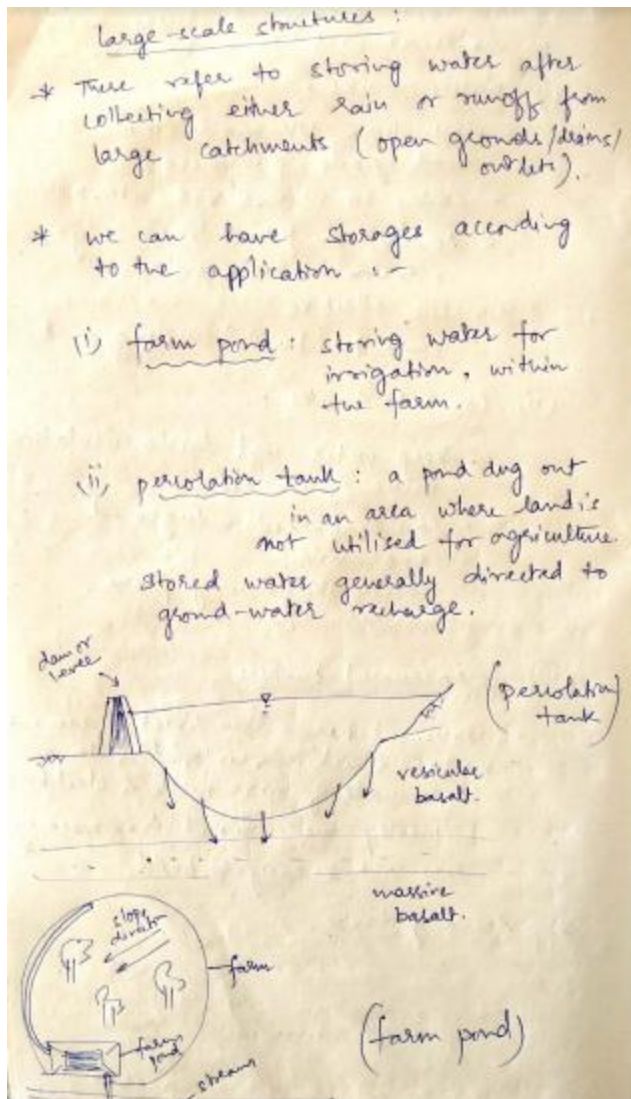 large-scale structures :
* These refer to storing water after
collecting either rain or runoff from
large catchments (open grounds/drains/
outlets).
* we can have storages according
to the application :-
(i) farm pond : storing water for
irrigation, within
the farm.
(ii) percolation tank : a pond dug out
in an area where land is
not utilised for agriculture.
Stored water generally directed to
ground-water recharge.
dam or
levee
(percolation
tank)
vesicular
basalt.
massive
basalt.
slope
direction
farm
farm
pond
(farm pond)
stream